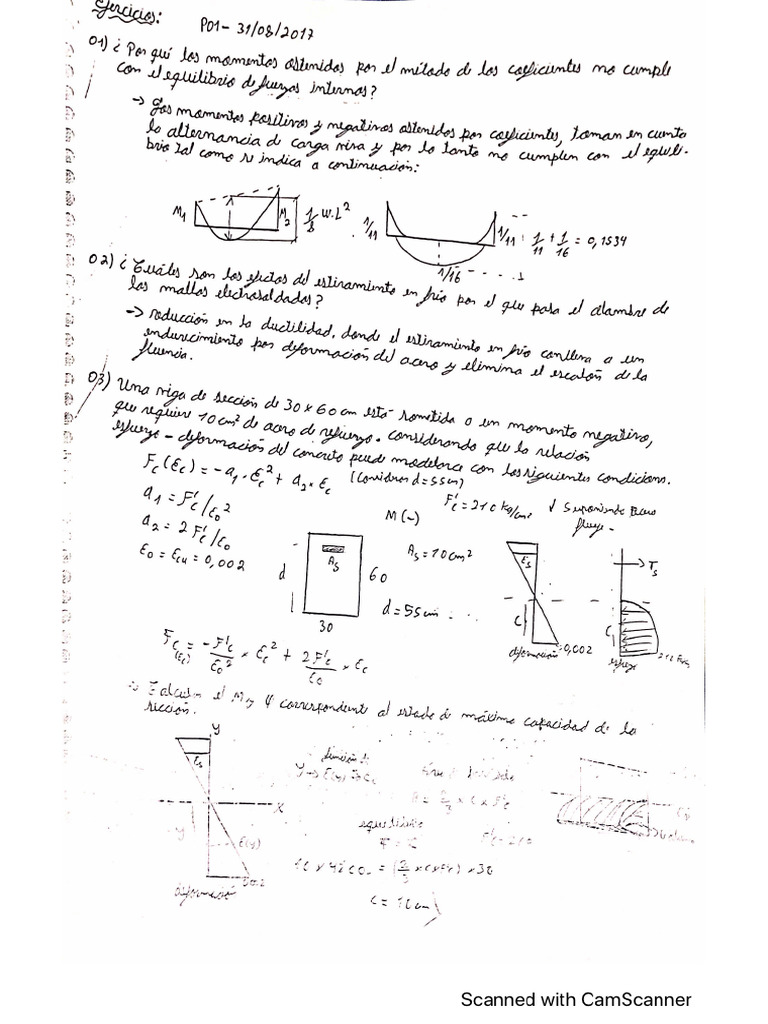 Ejercicios: P01- 31/08/2017
01) ¿Por qué los momentos obtenidos por el método de los coeficientes no cumple
con el equilibrio de fuerzas internas?
-> Los momentos positivos y negativos obtenidos por coeficientes, toman en cuenta
la alternancia de carga viva y por lo tanto no cumplen con el equili-
brio tal como se indica a continuación:
M1 M2 1/8 w.L²
1/11 1/16 1/11 : 1/11 + 1/16 = 0,1534
02) ¿Cuáles son los efectos del estiramiento en frío por el que pasa el alambre de
las mallas electrosoldadas?
-> reducción en la ductilidad, donde el estiramiento en frío conlleva a un
endurecimiento por deformación del acero y elimina el escalón de la
fluencia.
03) Una viga de sección de 30 x 60 cm está sometida a un momento negativo,
que requiere 10 cm² de acero de refuerzo. considerando que la relación
esfuerzo - deformación del concreto puede modelarse con las siguientes condiciones.
Fc(Ec) = -a1.Ec² + a2 x Ec (Considerar d=55cm)
a1 = F'c/E0²
a2 = 2F'c/E0
E0 = Ecu = 0,002
F'c = 210 kg/cm²
fluye -
M(-)
As = 10cm²
d As 60
d = 55cm
30
Es C deformación 0,002
Ts C esfuerzo
Fc(Ec) = -F'c/E0² x Ec² + 2F'c/E0 x Ec
el M y φ correspondiente al estado de máxima capacidad de la
sección.
y
Es
x
-y E(y)
deformación
equilibrio
F'c = 210
= (2/3 x C x F'c) x 30